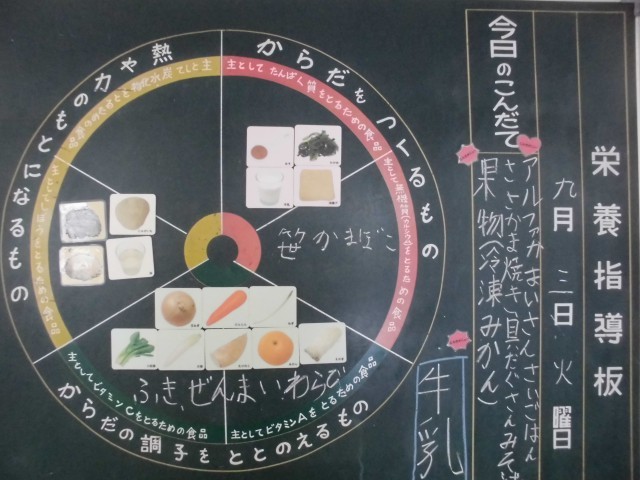 栄養指導板
九月三日火曜日
今日のこんだて
アルファかまいさんさいごはん
ささかま焼き具だくさんみそ
果物(冷凍みかん)
牛乳
からだをつくるもの
主としてたんぱく質をとるための食品
主として無機質(カルシウム)をとるための食品
笹かまぼこ
熱や力のもと
となるもの
からだの調子をととのえるもの
主としてビタミンAをとるための食品
主としてビタミンCをとるための食品
ふき、ぜんまい、わらび